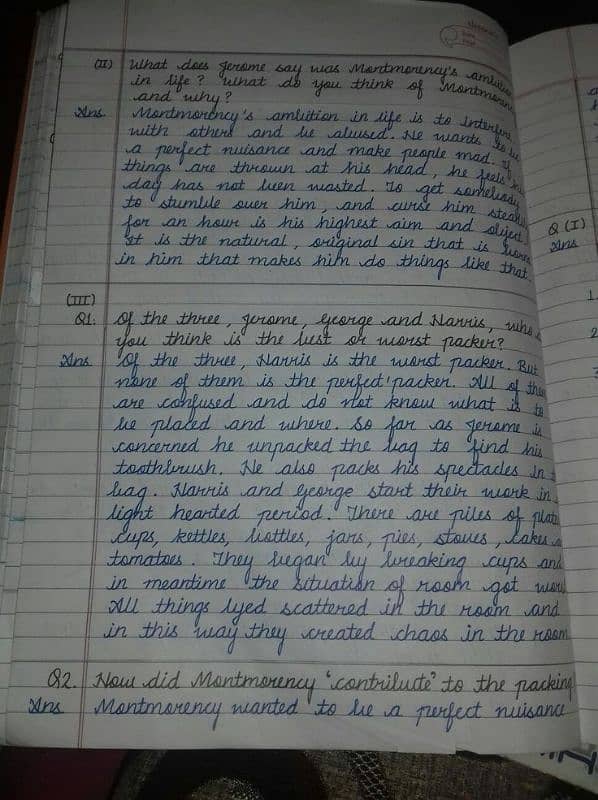 (II) What does Jerome say was Montmorency's ambition
in life? What do you think of Montmorency
and why?
Ans Montmorency's ambition in life is to Interfere
with others and be abused. He wants to be
a perfect nuisance and make people mad. If
things are thrown at his head, he feels his
day has not been wasted. To get somebody
to stumble over him, and curse him steadily
for an hour is his highest aim and object.
It is the natural, original sin that is born
in him that makes him do things like that.
(III)
Q1. Of the three, Jerome, George and Harris, who
you think is the best or worst packer?
Ans Of the three, Harris is the worst packer. But
none of them is the perfect packer. All of them
are confused and do not know what is to
be placed and where. So far as Jerome is
concerned he unpacked the bag to find his
toothbrush. He also packs his spectacles in
bag. Harris and George start their work in
light hearted period. There are piles of plates
cups, kettles, bottles, jars, pies, stoves, cakes
tomatoes. They began by breaking cups and
in meantime the situation of room got worse
All things lyed scattered in the room and
in this way they created chaos in the room
Q2. How did Montmorency 'contribute' to the packing
Ans Montmorency wanted to be a perfect nuisance
Q (I)
Ans
1.
2